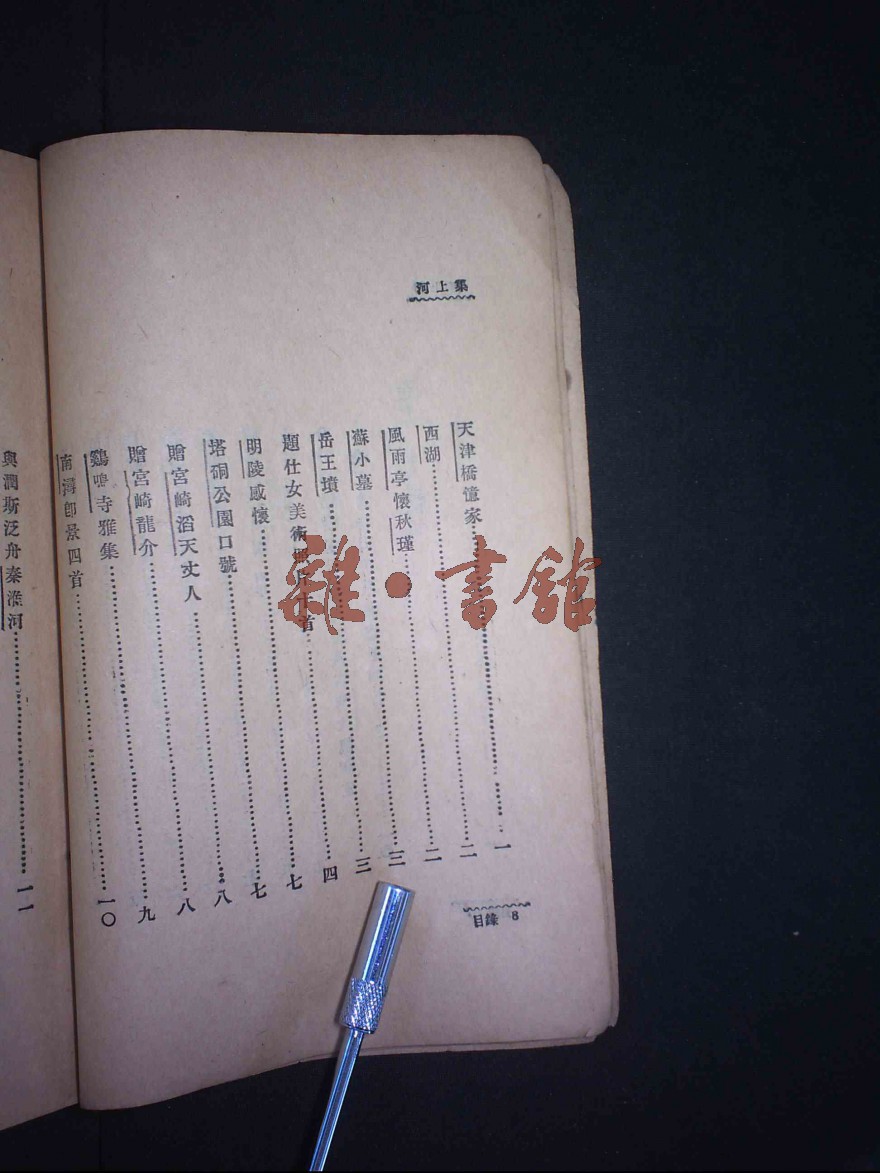 河上集
天津橋憶家……一
西湖……二
風雨亭懷秋瑾……二
蘇小墓……三
岳王墳……三
題仕女美術照片十首……四
明陵感懷……七
塔硐公園口號……七
贈宮崎滔天丈人……八
贈宮崎龍介……八
鷄鳴寺雅集……九
南潯卽景四首……一〇
與潤斯泛舟秦淮河……一一
目錄 8
雜·書館